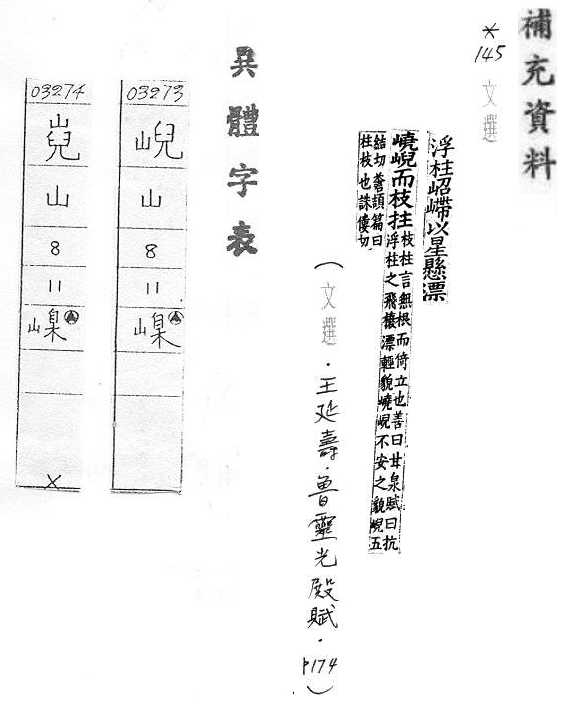 補充資料
*145 文選
浮柱岧嵽以星懸漂
嶢峴而枝拄
枝柱言無根而倚立也善曰甘泉賦曰抗
浮柱之飛榱漂輕貌嶢峴不安之貌峴五
結切蒼頡篇曰
柱枝也誅僂切
(文選．王延壽．魯靈光殿賦．P174)
異體字表
03273
山
8
11
03274
山
8
11
X